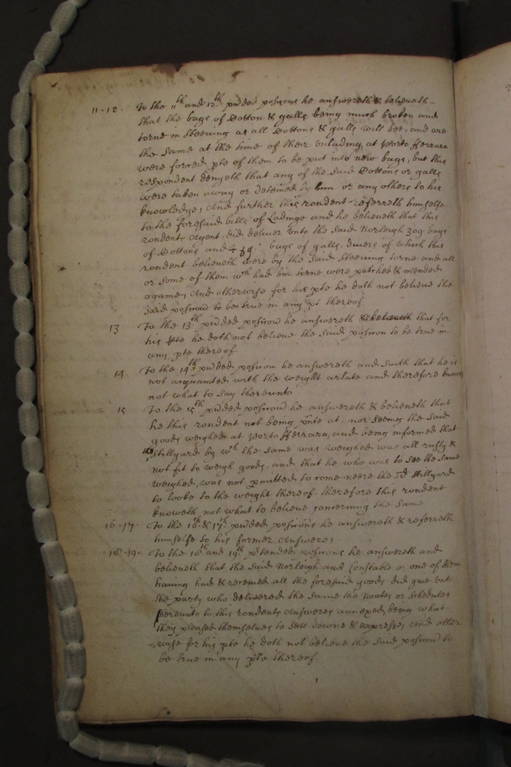 11-12. To the 11th and 12th pnded posicons he answereth & beleiveth
that the bags of Cottons & galls being much broken and
torne in steeving as all Cottons & galls will bee, and are
the same at the time of their unlading at porto fferraro
were forced pte of them to be put into new bags, but this
respondent denyeth that any of the said Cottons or galls
were taken away or detained by him or any others to his
knowledge, And further this rondent referreth himselfe
to the foresaid bills of Lading and he beleiveth that this
rondents Agent did deliver unto the said Norleigh 309 bags
of Cottons and 49 bags of galls, divers of which this
rondent beleiveth were by the said steeving torne and all
or some of them wch had bin torne were patched & mended
againe, And otherwise for his pte he doth not beleive the
said posicon to bee true in any pt thereof
13 To the 13th pnded posicon he answereth & beleiveth that for
his pte he doth not beleive the said posicon to be true in
any pte thereof
14 To the 14th pnded posicon he answereth and saith that he is
not acquainted with the weight arlate and therefore knoweth
not what to say thereunto
15 To the 15th pnded posicon he answereth & beleiveth that
he this rondent not being pnte at nor seeing the said
goods weighed at porto fferraro, and being informed that
the stillyard by wch the same was weighed was all rusty &
not fit to weigh goods, and that he who was to see the same
weighed was not pmitted to come neere the sd stillyard
to looke to the weight thereof therefore this rondent
knoweth not what to beleive concerning the same
16-17. To the 16th & 17th pnded posicons he answereth & referreth
himselfe to his former Answers;
18-19. To the 18th and 19th pretended posicons he answereth and
beleiveth that the said Norleigh and Constable or one of them
having had & received all the foresaid goods did give but
the party who delivered the same the Noates or schedules
hereunto to this rondents Answeres annexed, being what
they pleased themselves to sett downe & expresse, And other
wise for his pte he doth not beleive the said posicon to
be true in any pte thereof.